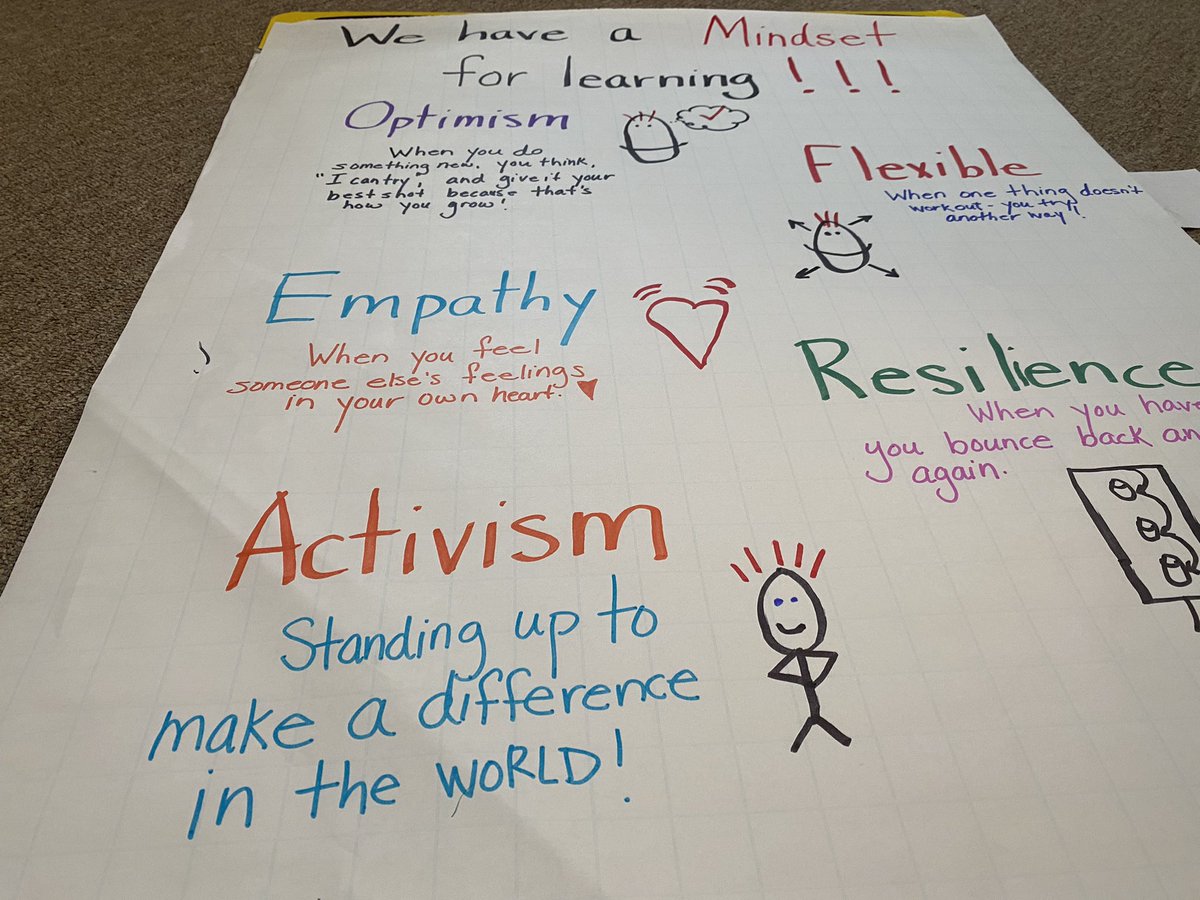 We have a Mindset
for learning !!!
Optimism
When you do
something new, you think,
"I can try", and give it your
best shot because that's
how you grow!
Flexible
When one thing doesn't
workout - you try
another way!
Empathy
When you feel
someone else's feelings
in your own heart.
Resilience
When you have
you bounce back an
again.
Activism
Standing up to
make a difference
in the WORLD!